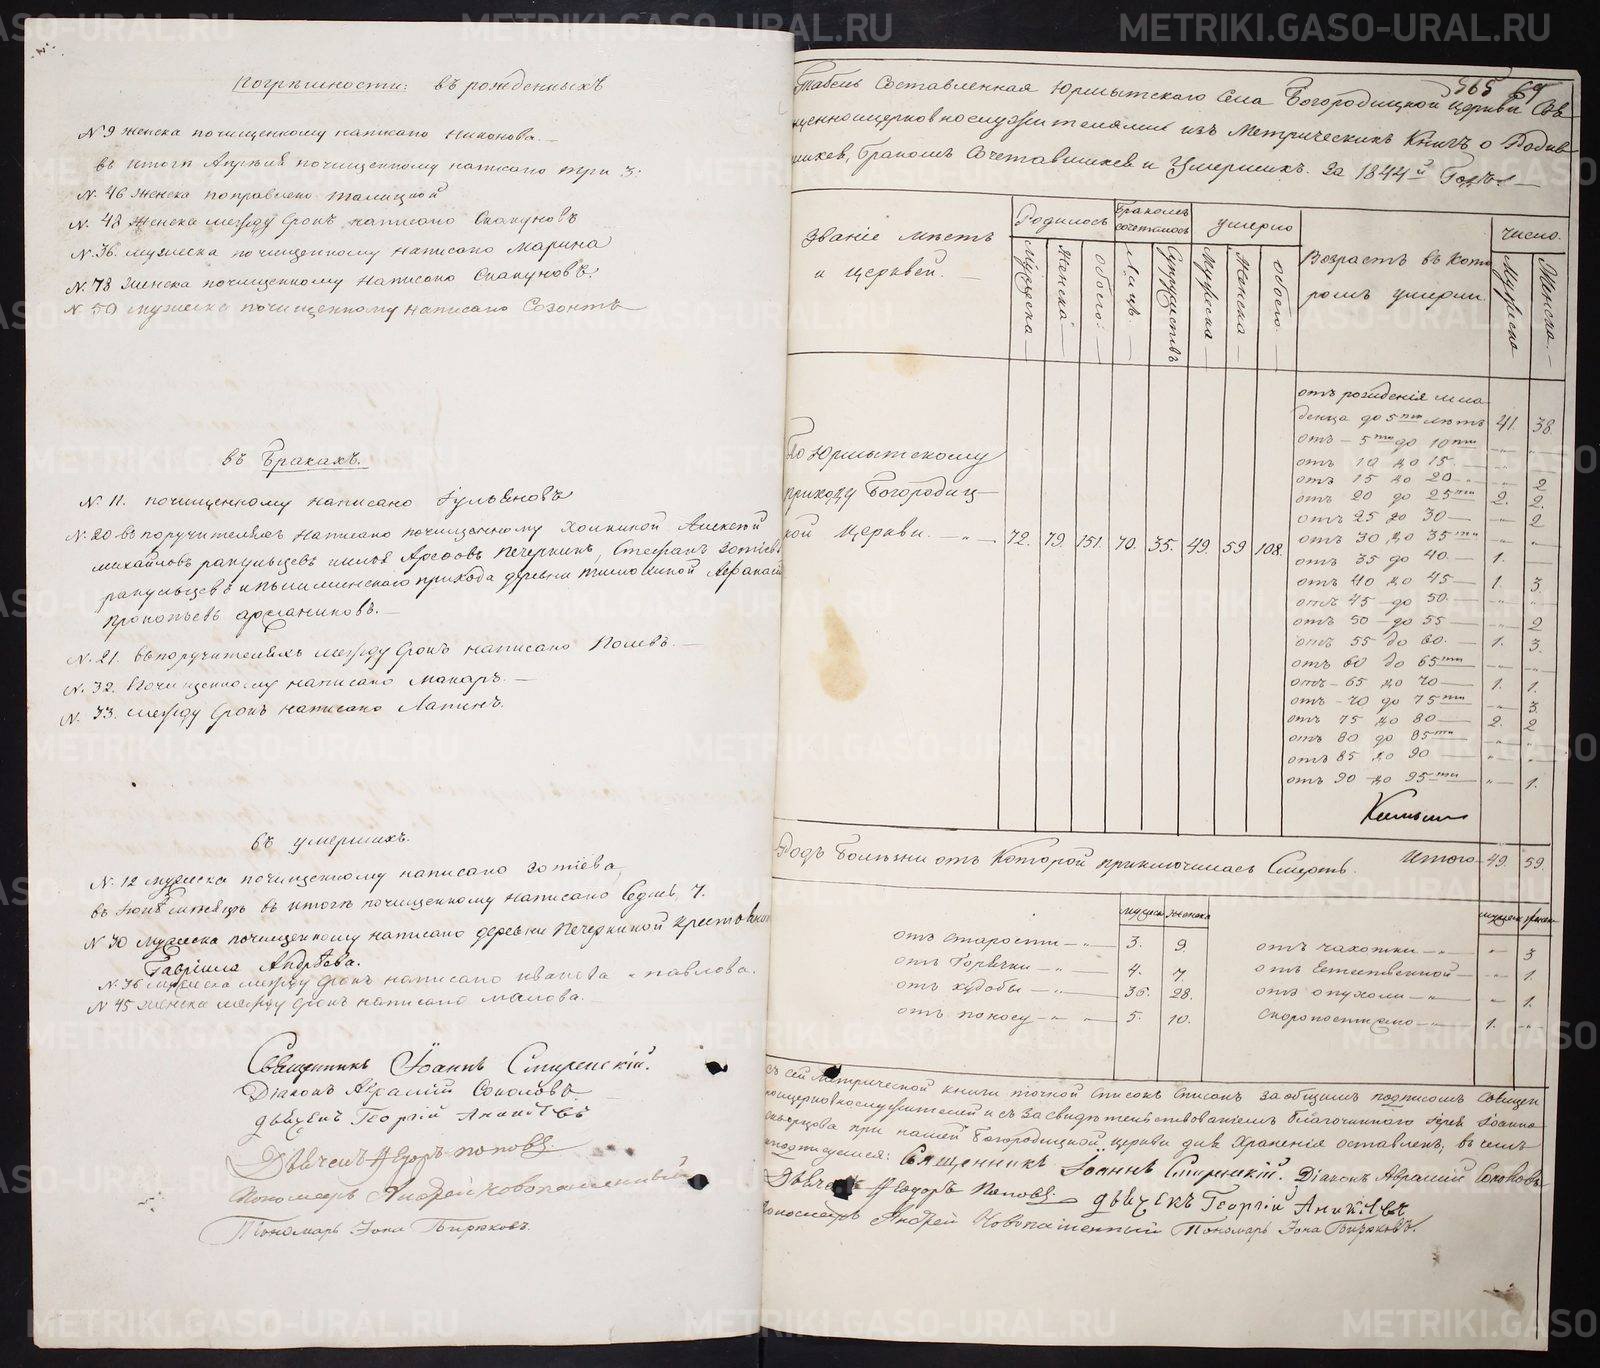 Погрѣшности: въ рожденныхъ
№ 9 женска почищенному написано Никонова.
въ итогѣ Апрѣля почищенному написано три 3.
№. 46 женска поправлено Талицкой
№. 48 Женска между строкъ написано Скакуновъ
№. 36. мужеска почищенному написано Марина
№. 78 женска почищенному написано Скакуновъ.
№. 50 мужеска почищенному написано Созонтъ
въ Бракахъ.
№. 11. почищенному написано Гульяновъ
№. 20 въ поручителяхъ написано почищенному Алексѣй
Михайловъ Печеркинъ, Стефанъ Зотіевъ
прихода деревни
Прокопьевъ
№. 21. въ поручителяхъ между строкъ написано
№. 32. Почищенному написано Макаръ.
№. 33. между строкъ написано Лапинъ.
въ умершихъ.
№. 12 мужеска почищенному написано Зотіева
въ Іюнѣ мѣсяцѣ въ итогѣ почищенному написано Седмь, 7.
№ 30 мужеска почищенному написано деревни Печеркиной
Гавріила Андрѣева.
№. 36 мужеска между строкъ написано иванова павлова.
№ 45 женска между строкъ написано малова.
Священникъ Іоаннъ Смиренскій.
Діаконъ Авраамій Соколовъ.
дьячекъ Георгій Аникіевъ
Дьячекъ Ѳедоръ Поповъ
Пономарь Андрей Новопашенный
Пономарь Іона Бирюковъ.
565
Табель Составленная Юрмытскаго Села Богородицкой церкви Свя
щенноцерковнослужителями изъ Метрическихъ Книгъ о Родив
шихся, Бракомъ Сочетавшихся и Умершихъ. За 1844й Годъ.
Званіе мѣстъ и церквей.
Родилось
Бракомъ сочеталось
умерло
Возрастъ въ кото
ромъ умерли
число.
Мужеска
Женска
обоего
Лицъ.
Супружествъ
Мужеска
Женска
обоего.
Мужеска
Женска.
По Юрмытскому
приходу Богородиц
кой Церкви. 72. 79. 151. 70. 35. 49. 59 108.
отъ рожденія мла
денца до 5ти лѣтъ 41. 38.
отъ 5ти до 10ти „ „
отъ 10 до 15. „ „
отъ 15 до 20 „ 2
отъ 20 до 25ти 2. 2.
отъ 25 до 30 „ 2
отъ 30 до 35ти „ „
отъ 35 до 40. 1.
отъ 40 до 45 1. 3.
отъ 45 до 50. „ „
отъ 50 до 55 „ 2
отъ 55 до 60. 1. 3.
отъ 60 до 65ти „ „
отъ 65 до 70 1. 1.
отъ 70 до 75ти „ 3.
отъ 75 до 80 2. 2
отъ 80 до 85ти „ „
отъ 85 до 90 „ „
отъ 90 до 95ти „ 1.
Итого 49. 59.
Родъ Болѣзни отъ Которой приключилась Смерть.
мужск женска
отъ старости 3. 9.
отъ Горячки 4. 7
отъ худобы 36. 28.
отъ поносу 5. 10.
отъ чахотки „ 3
отъ Естественной „ 1.
отъ опухоли „ 1.
Скоропостижно 1. „
Съ сей Метрической книги точной списокъ списанъ за общимъ подписомъ Священ
ноцерковнослужителей и съ засвидѣтельствованіемъ Благочиннаго Іерея Іоанна
при нашей Богородицкой церкви для Храненія оставленъ, въ чемъ
и подписуемся: Священникъ Іоаннъ Смиренскій. Діаконъ Авраамій Соколовъ
Дьячекъ Ѳедоръ Поповъ. дьячекъ Георгій Аникіевъ
Пономарь Андрей Новопашенный Пономарь Іона Бирюковъ.
METRIKI.GASO-URAL.RU